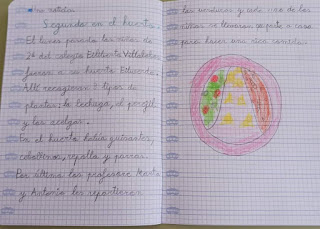 Una noticia
Segundo en el huerto.
El lunes pasado los niños de
2º del colegio
fueron a su huerto Educativo.
Allí recogieron 3 tipos de
plantas: la lechuga, el perejil
y las acelgas.
En el huerto había guisantes,
cebollinos, repollo y puerros.
Por último los profesores
y Antonio les repartieron
las verduras y cada uno de los
niños se llevaron su parte a casa
para hacer una rica comida.